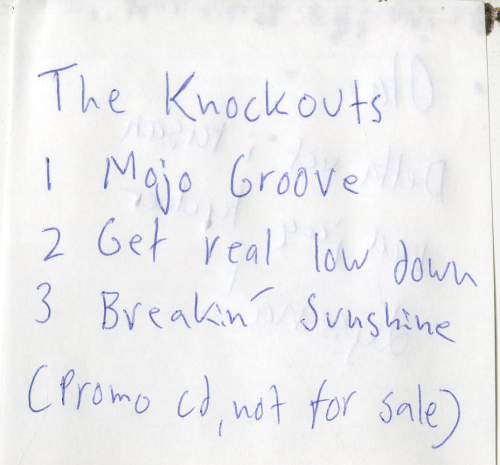 The Knockouts
1 Mojo Groove
2 Get real low down
3 Breakin' Sunshine
(Promo cd, not for sale)